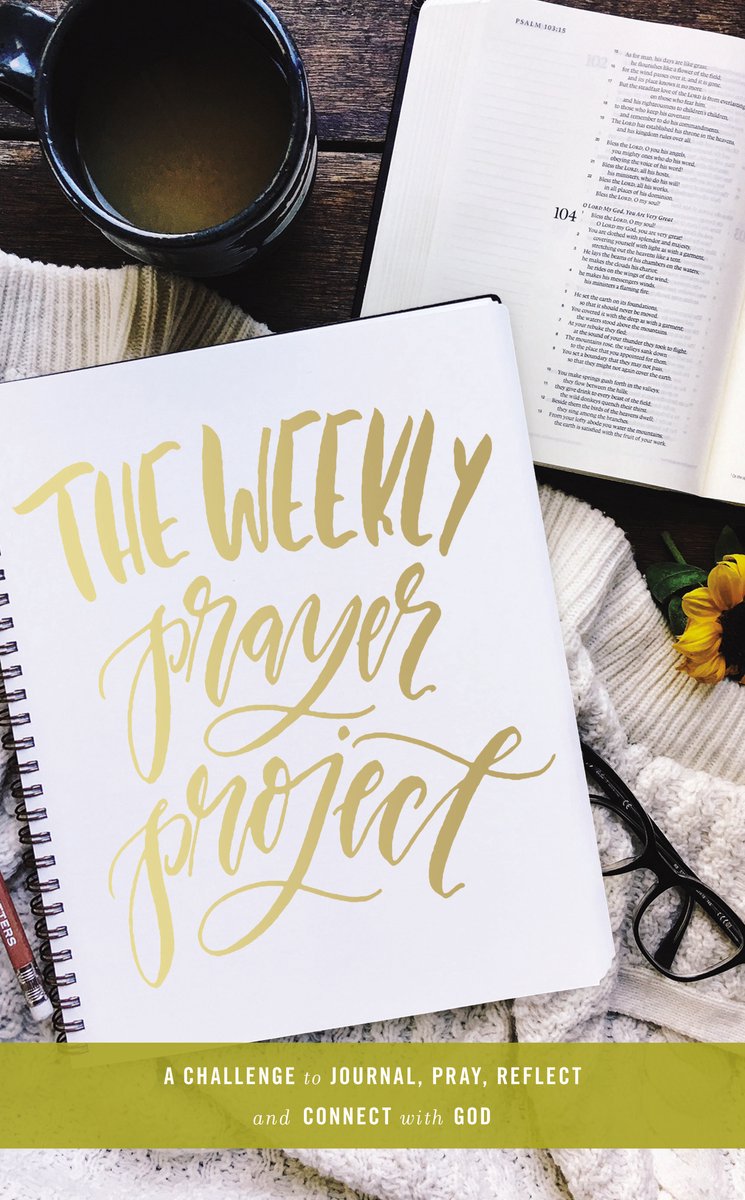 THE WEEKLY
prayer
project
A CHALLENGE to JOURNAL, PRAY, REFLECT
and CONNECT with GOD
PSALM 103:15
15 As for man, his days are like grass;
he flourishes like a flower of the field;
16 for the wind passes over it, and it is gone,
and its place knows it no more.
17 But the steadfast love of the LORD is from everlasting
on those who fear him,
and his righteousness to children's children,
18 to those who keep his covenant
and remember to do his commandments.
19 The LORD has established his throne in the heavens,
and his kingdom rules over all.
20 Bless the LORD, O you his angels,
you mighty ones who do his word,
obeying the voice of his word!
21 Bless the LORD, all his hosts,
his ministers, who do his will!
22 Bless the LORD, all his works,
in all places of his dominion.
Bless the LORD, O my soul!
O LORD My God, You Are Very Great
104 Bless the LORD, O my soul!
O LORD my God, you are very great!
You are clothed with splendor and majesty,
2 covering yourself with light as with a garment,
stretching out the heavens like a tent.
3 He lays the beams of his chambers on the waters;
he makes the clouds his chariot;
he rides on the wings of the wind;
4 he makes his messengers winds,
his ministers a flaming fire.
5 He set the earth on its foundations,
so that it should never be moved.
6 You covered it with the deep as with a garment;
the waters stood above the mountains.
7 At your rebuke they fled;
at the sound of your thunder they took to flight.
8 The mountains rose, the valleys sank down
to the place that you appointed for them.
9 You set a boundary that they may not pass,
so that they might not again cover the earth.
10 You make springs gush forth in the valleys;
they flow between the hills;
11 they give drink to every beast of the field;
the wild donkeys quench their thirst.
12 Beside them the birds of the heavens dwell;
they sing among the branches.
13 From your lofty abode you water the mountains;
the earth is satisfied with the fruit of your work.